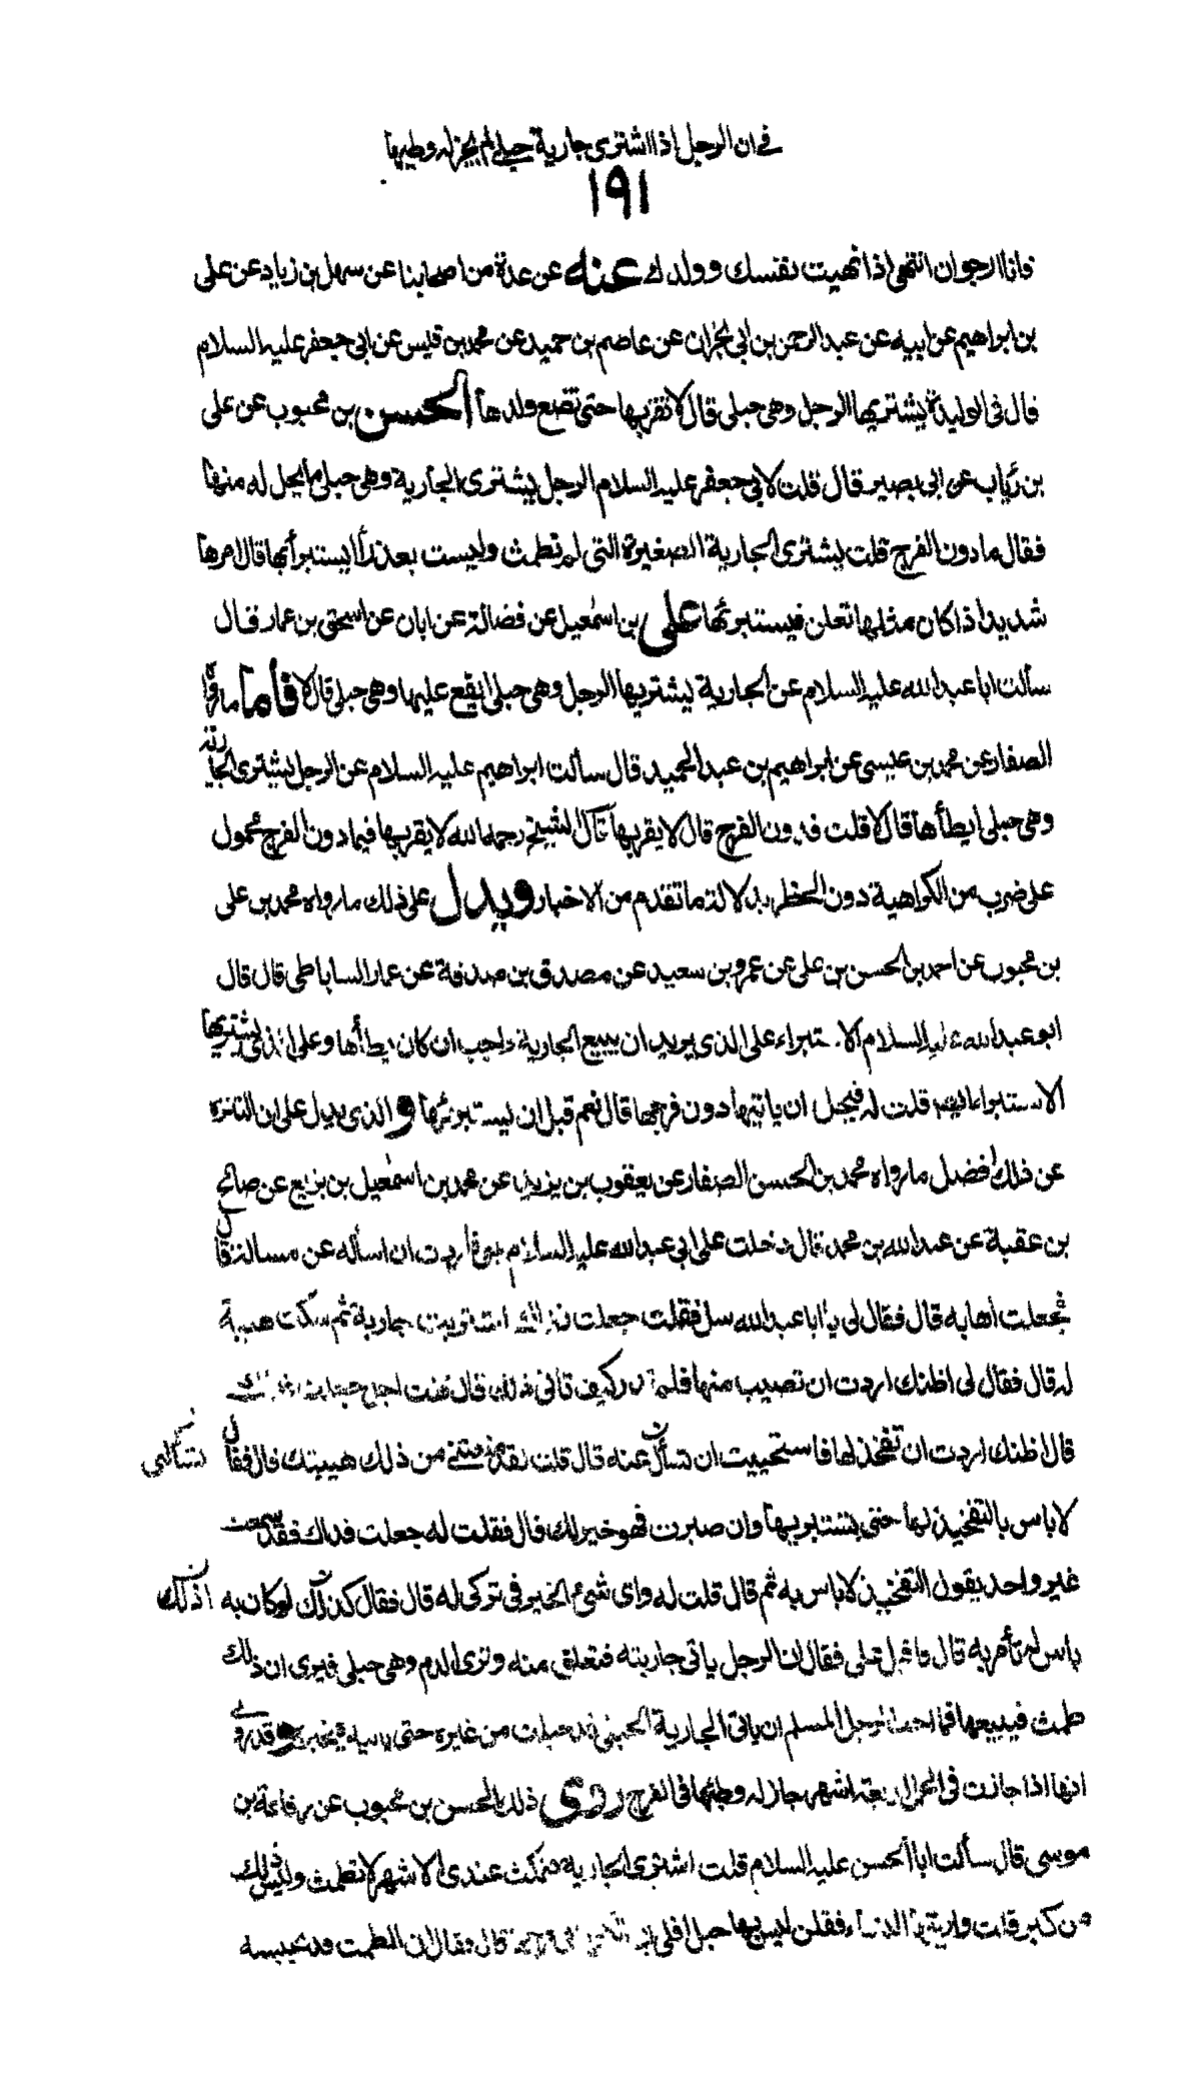 في ان الرجل اذا اشترى جارية حبلى لم يجز له وطيها
١٩١
فانا ارجو ان انتهى اذا نهيت نفسك وولدك عنه عن عدة من اصحابنا عن سهل بن زياد عن على
بن ابراهيم عن ابيه عن عبد الرحمن بن ابى نجران عن عاصم بن حميد عن محمد بن قيس عن ابى جعفر عليه السلام
قال فى الوليدة يشتريها الرجل وهى حبلى قال لا تقربها حتى تضع ولدها الحسن بن محبوب عن على
بن رئاب عن ابى بصير قال قلت لابى جعفر عليه السلام الرجل يشترى الجارية وهى حبلى ما يحل له منها
فقال ما دون الفرج قلت يشترى الجارية الصغيرة التى لم تطمث وليست بعذراء ايستبرأ بها قال امرها
شديد اذا كان مثلها تعلق فيستبرئها على بن اسمعيل عن فضالة عن ابان عن اسحق بن عمار قال
سألت ابا عبد الله عليه السلام عن الجارية يشتريها الرجل وهى حبلى ايقع عليها وهى حبلى قال لا فأما ما رواه
الصفار عن محمد بن عيسى عن ابراهيم بن عبد الحميد قال سألت ابراهيم عليه السلام عن الرجل يشترى الجارية
وهى حبلى ايطأها قال لا قلت فدون الفرج قال لا يقربها قال الشيخ رحمه الله لا يقربها فيما دون الفرج محمول
على ضرب من الكراهية دون الحظر بدلالة ما تقدم من الاخبار ويدل على ذلك ما رواه محمد بن على
بن محبوب عن احمد بن الحسن بن على عن عمرو بن سعيد عن مصدق بن صدقة عن عمار الساباطى قال قال
ابو عبد الله عليه السلام الاستبراء على الذى يريد ان يبيع الجارية واجب ان كان يطأها وعلى الذى يشتريها
الاستبراء ايضا قلت له فيحل ان ياتيها دون فرجها قال نعم قبل ان يستبرئها و الذى يدل على ان التنزه
عن ذلك افضل ما رواه محمد بن الحسن الصفار عن يعقوب بن يزيد عن محمد بن اسمعيل بن بزيع عن صالح
بن عقبة عن عبد الله بن محمد قال دخلت على ابى عبد الله عليه السلام بمنى فأردت ان اسأله عن مسالة قال
فجعلت اهابه قال فقال لى يا ابا عبد الله سل فقلت جعلت فداك اشتريت جارية ثم سكت هيبة
له قال فقال لى اظنك اردت ان تصيب منها فلم تدر كيف تأتى ذلك قال قلت اجل جعلت فداك
قال اظنك اردت ان تفخذ لها فاستحييت ان تسأل عنه قال قلت لقد منعتنى من ذلك هيبتك قال فقال
لا باس بالتفخيذ لها حتى تستبريها وان صبرت فهو خير لك قال فقلت له جعلت فداك فقد سمعت
غير واحد يقول التفخيذ لا باس به ثم قال قلت له واى شىء الخير فى تركى له قال فقال كذلك لو كان به
باس لم نأمر به قال ثم اقبل على فقال ان الرجل ياتى جاريته فتعلق منه وترى الدم وهى حبلى فيرى ان ذلك
طمث فيبيعها فما احب للرجل المسلم ان ياتى الجارية الحبلى قد حبلت من غيره حتى ياتيه فيخبره وقد روى
انها اذا جازت فى الحمل اربعة اشهر جاز له وطئها فى الفرج روى ذلك الحسن بن محبوب عن رفاعة بن
موسى قال سألت ابا الحسن عليه السلام قلت اشترى الجارية فتمكث عندى الاشهر لا تطمث وليس ذلك
من كبر قلت واريتها النساء فقلن ليس بها حبل افلى ان قال فقال ان الطمث قد تحبسه